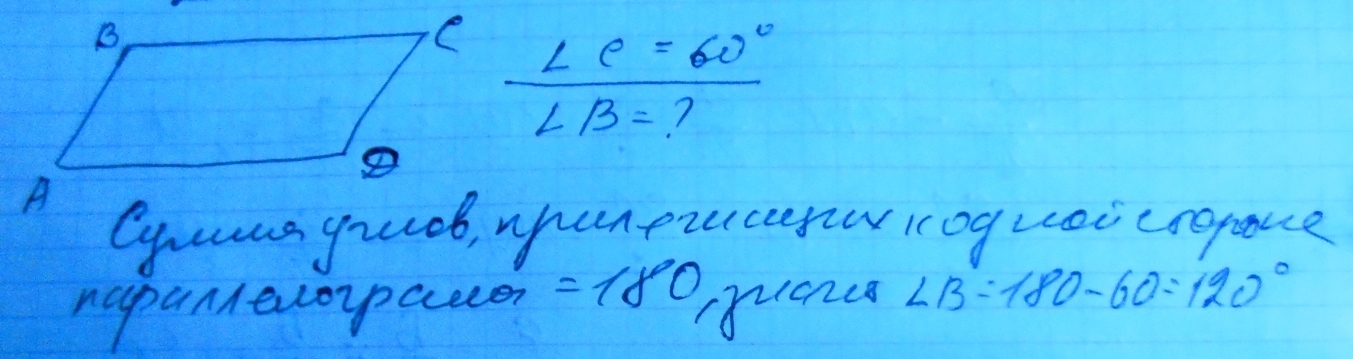 B C
∠C = 60°
∠B = ?
A D
Сумма углов, прилежащих к одной стороне
параллелограма = 180, значит ∠B = 180 - 60 = 120°